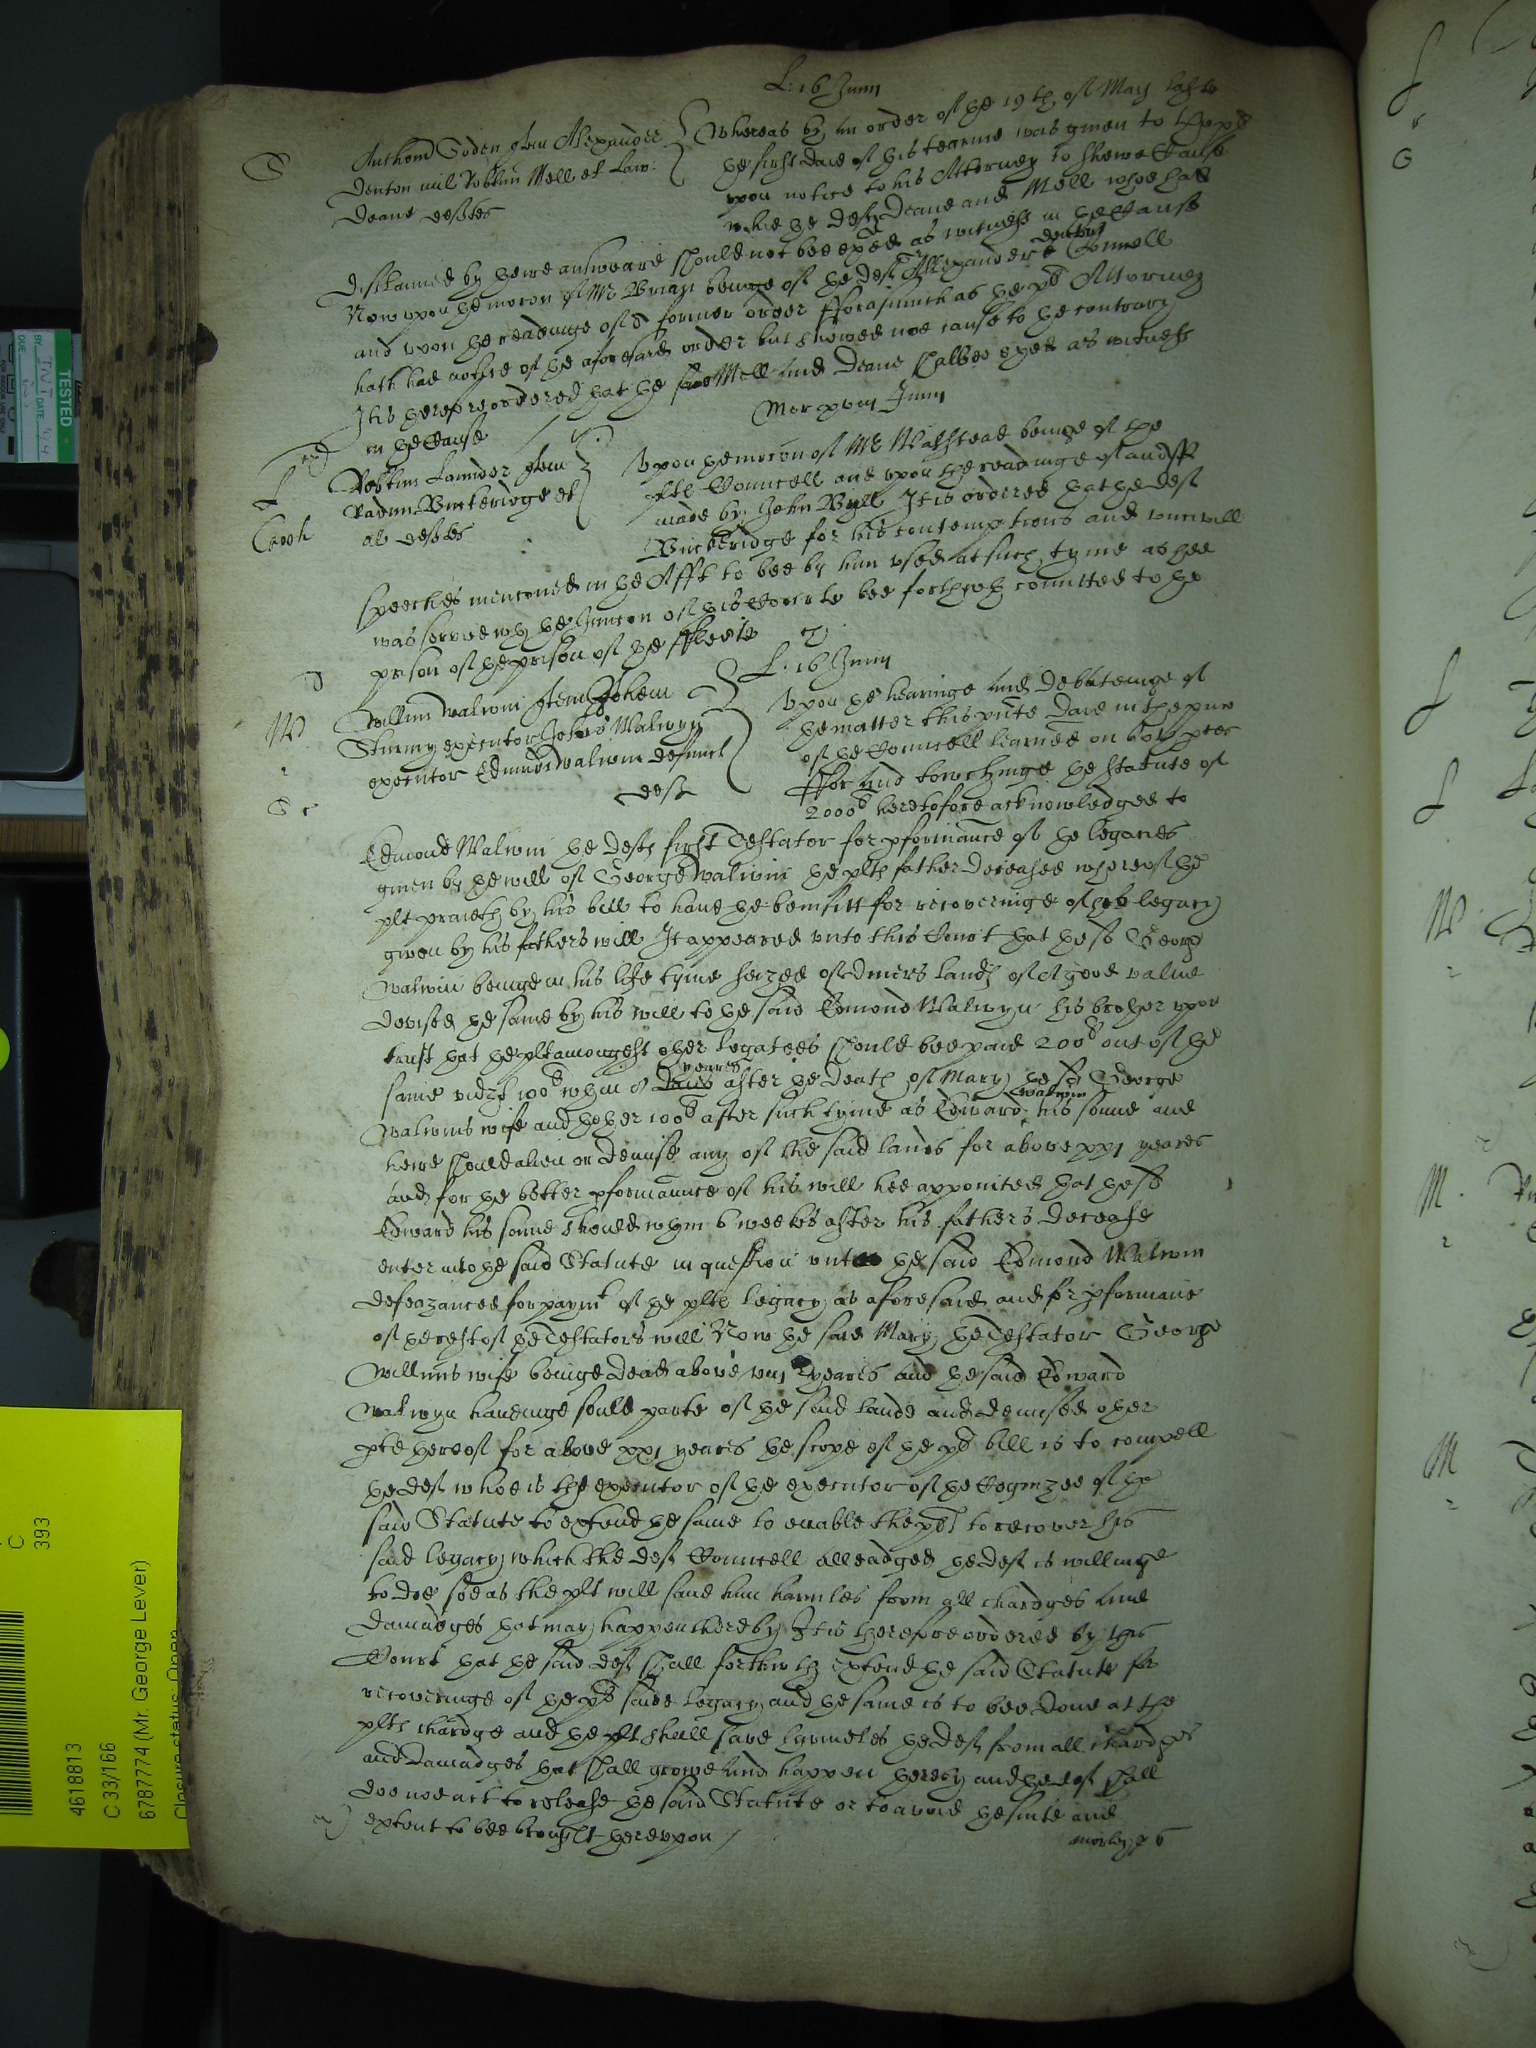 L: 16 Junij
S
Anthoni Soden quer Alexander
Denton mil Robtum Mell et Law:
Deane defts
Whereas by an order of the 19th of May laste
the first daie of this tearme was given to the
upon notice to his Attorney to shewe Cause
whie the deftes Deane and Mell whoe had
disclaimed by theire answeare should not bee exãed as witness in the Cause
Now upon the mocon of Mr beinge of the deft Alexanders Denton Councell
and upon the readinge of former order fforasmuch as the plts Attorney
hath had notice of the aforesaid order but shewed noe cause to the contrary
It is therefore ordered that the said Mell and Deane shalbee exãed as witness
in the Cause
Mer xviij Junij
Robtum quer
Buckeridge et
al defts
Upon the mocon of Mr Walstead beinge of the
plts Councell and upon the readinge of an Afft
made by John Byll It is ordered that the deft
Buckeridge for his contemptuous and uncivill
speeches menconed in the Afft to bee by him used at such tyme as hee
was served with the Iniuncon of this Courte bee forthwith comitted to the
prison of the prison of the ffleete
L: 16 Junij
W
Willim Walwin quer John
executor Johis Walwyn
executor Edmund Walwin defunct
deft
Upon the hearinge and debateinge of
the matter this pñte daie in the pñce
of the Councell learned on both ptes
ffor and towchinge the statute of
2000li heretofore acknowledged to
Edmond Walwin the defts first Testator for pformance of the legacies
given by the will of George Walwin the plts father deceased whereof the
plt praieth by his bill to have the benifitt for recoveringe of his legacy
given by his fathers will It appeared unto this Court that the sd George
Walwin beinge in his life tyme seized of divers lands of a good value
devised the same by his will to the said Edmond Walwyn his brother upon
trust that the plt amongest other legatees should bee paid 200li out of the
same vidzt 100li within 8 daies yeares after the death of Mary the sd George
Walwins wife and thother 100li after such tyme as Edward Walwin his sonne and
heire should alien or demise any of the said lands for above xxj yeares
and for the better pformaunce of his will hee appointed that the sd
Edward his sonne should within 6 weekes after his fathers decease
enter into the said Statute in question unto the said Edmond Walwin
defeazanced for paymt of the plts legacy as aforesaid and for pformance
of the rest of the Testators will Now the said Mary the Testator George
Wallwins wife beinge dead above viij yeares and the said Edward
Walwyn haveinge sould parte of the said lands and demised other
pte thereof for above xxj yeares the scope of the plts bill is to compell
the deft whoe is the executor of the executor of the Cognizee of the
said Statute to extend the same to enable the plt to recover his
said legacy which the defts Councell alleadged the deft is willinge
to doe soe as the plt will save him harmeles from all chardges and
damadges that may happen thereby It is therefore ordered by this
Court that the said deft shall forthwith extend the said Statute for
recoveringe of the plts said legacy and the same is to bee done at the
plts chardge and the plt shall save harmeles the deft from all chardges
and damadges that shall growe and happen thereby and the deft shall
doe noe act to release the said Statute or to avoid the suite and
extent to bee brought thereupon
TESTED
BY
INT
DATE
DUE
C
393
4618813
C 33/166
6787774 (Mr. George Lever)
Closure status: Open